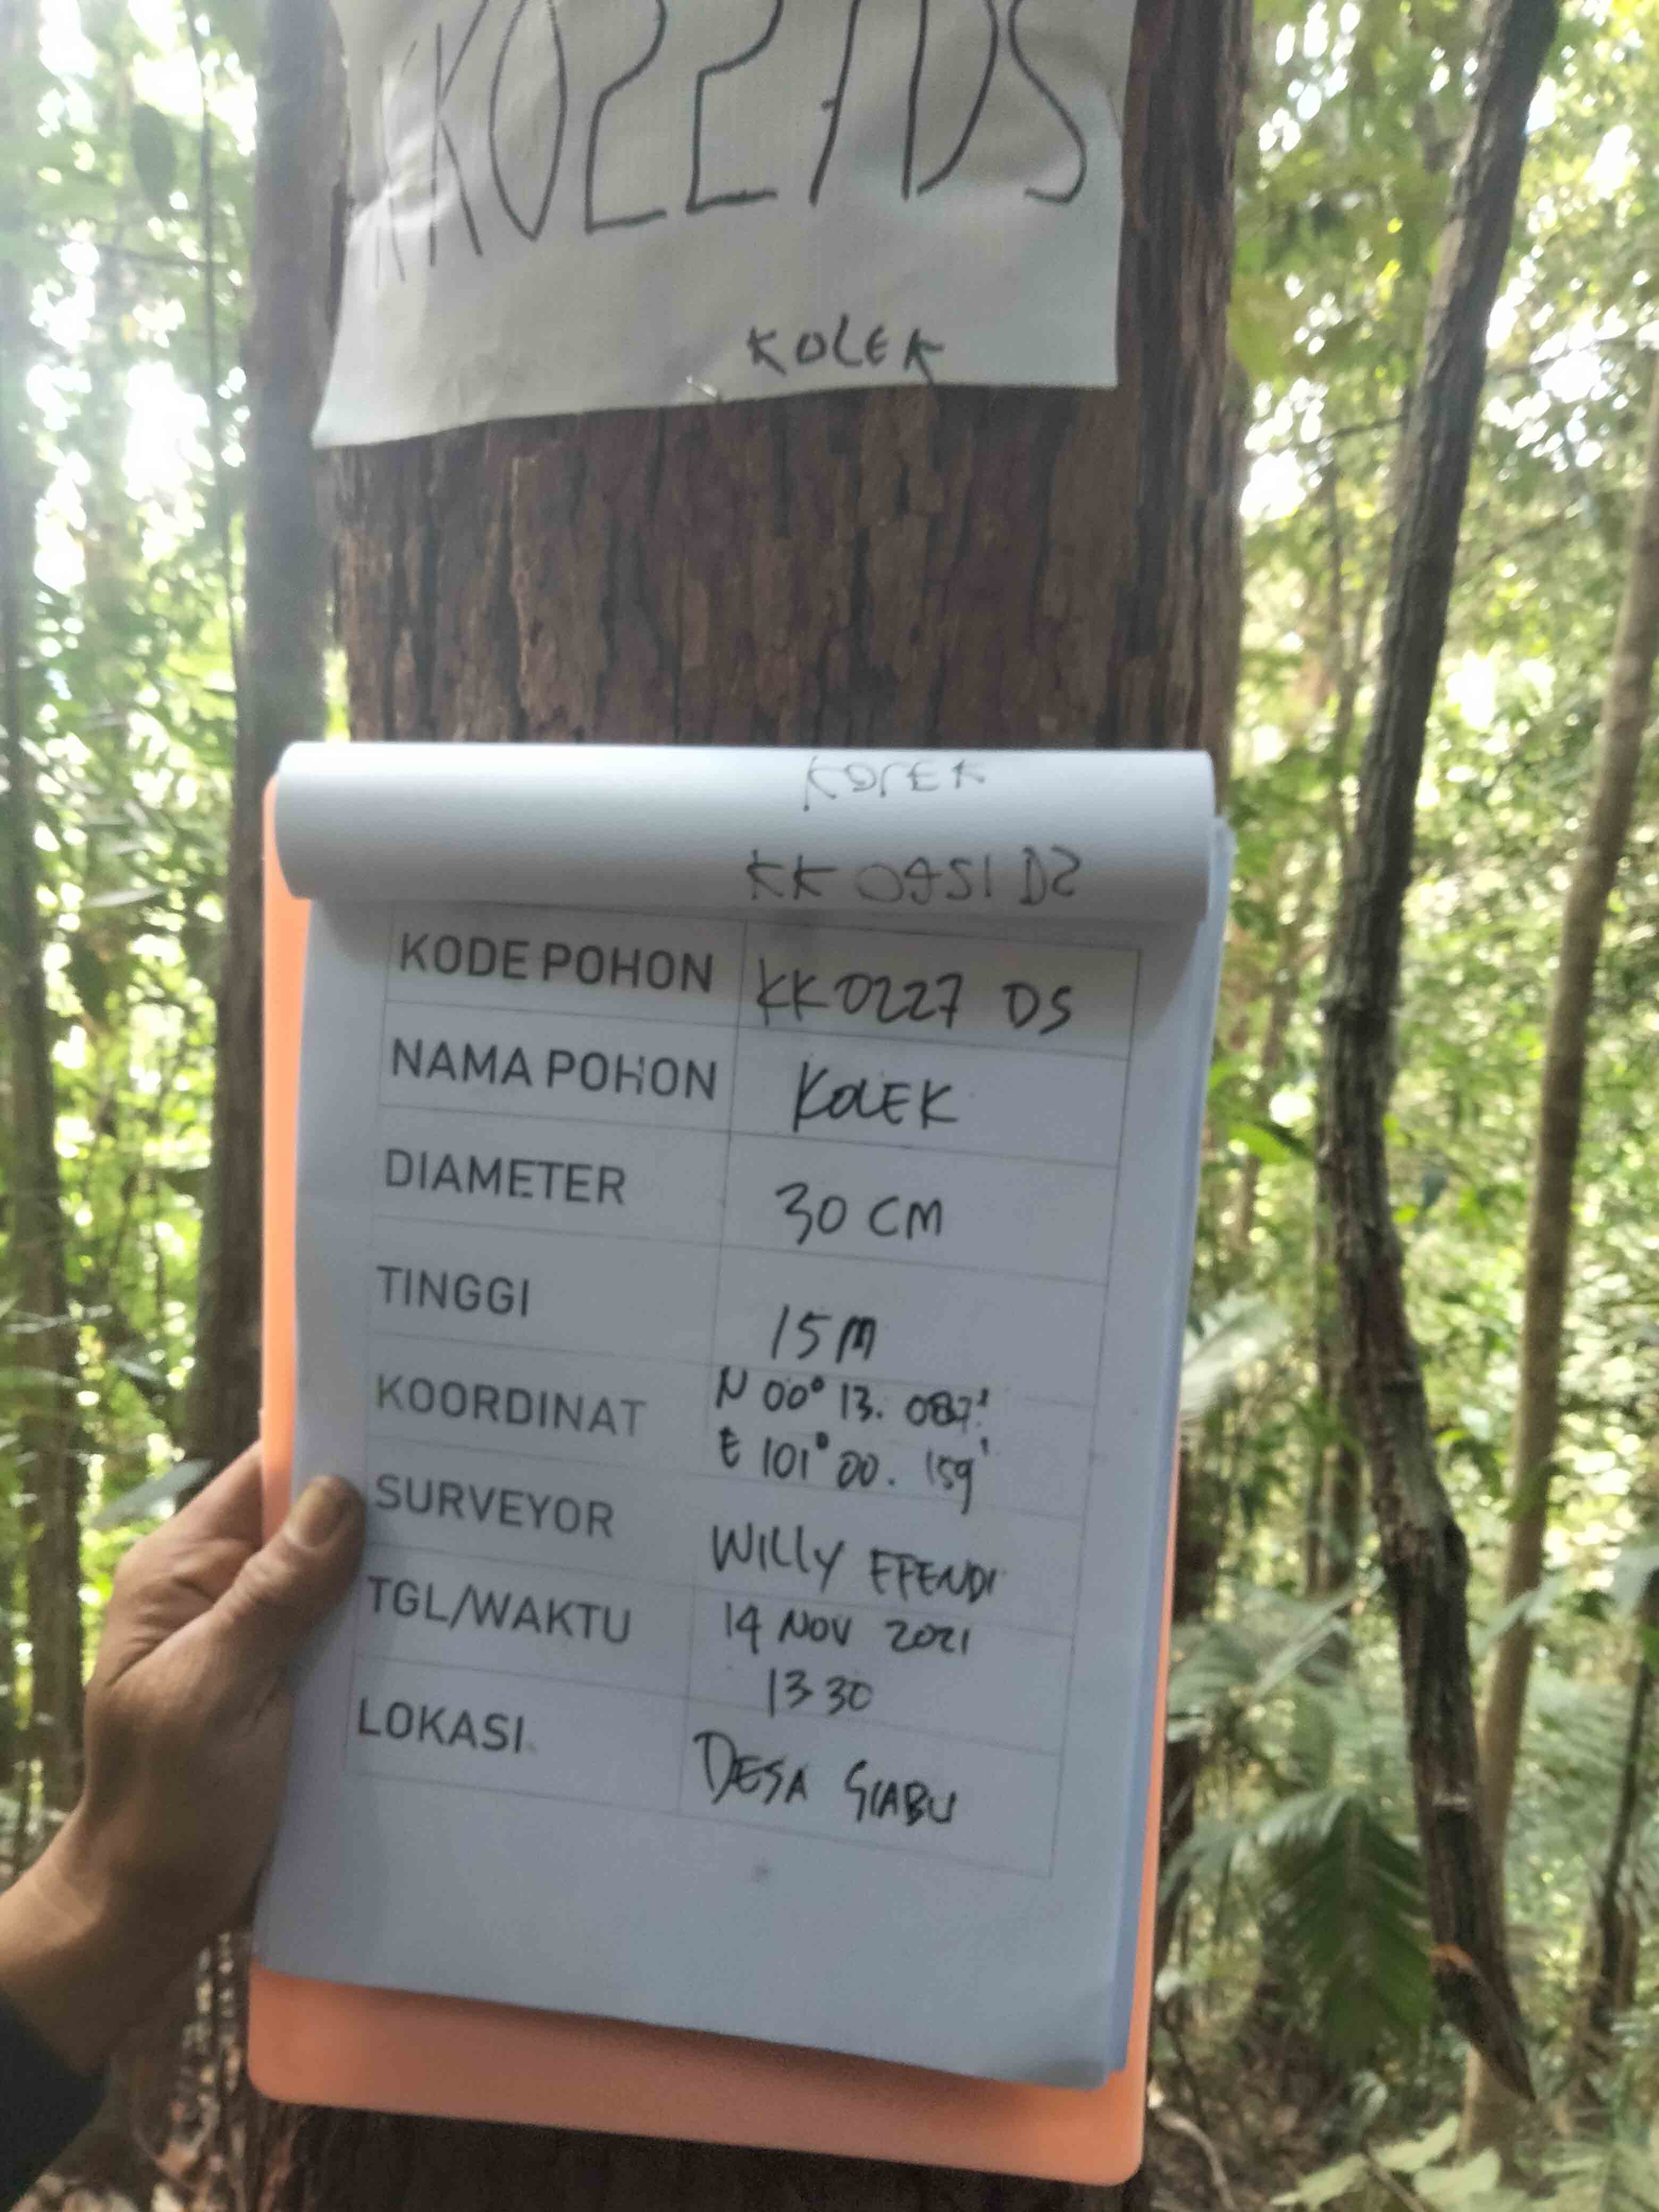 KK0227DS
KOLEK
KODE POHON KK0227 DS
NAMA POHON KOLEK
DIAMETER 30 CM
TINGGI 15 M
KOORDINAT N 00° 13. 087'
E 101° 00. 159'
SURVEYOR WILLY EFENDI
TGL/WAKTU 14 NOV 2021
13 30
LOKASI DESA SIABU